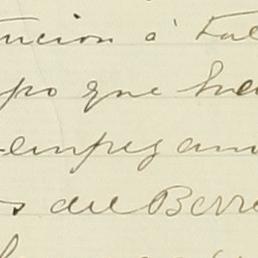 ucion á Fal
po que hue
empezam
s del Berre